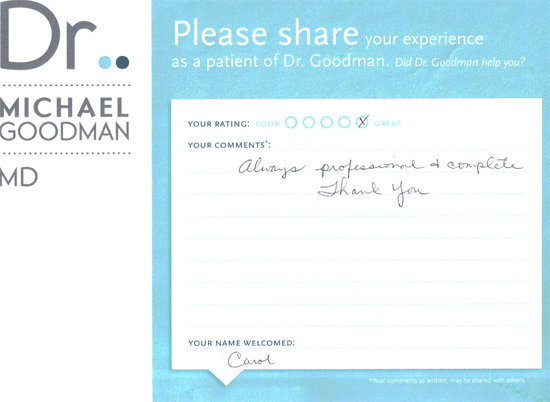 Dr.
MICHAEL
GOODMAN
MD
Please share your experience
as a patient of Dr. Goodman. Did Dr. Goodman help you?
YOUR RATING: POOR GREAT
YOUR COMMENTS*:
Always professional & complete
Thank You
YOUR NAME WELCOMED:
Carol
*Your comments as written, may be shared with others